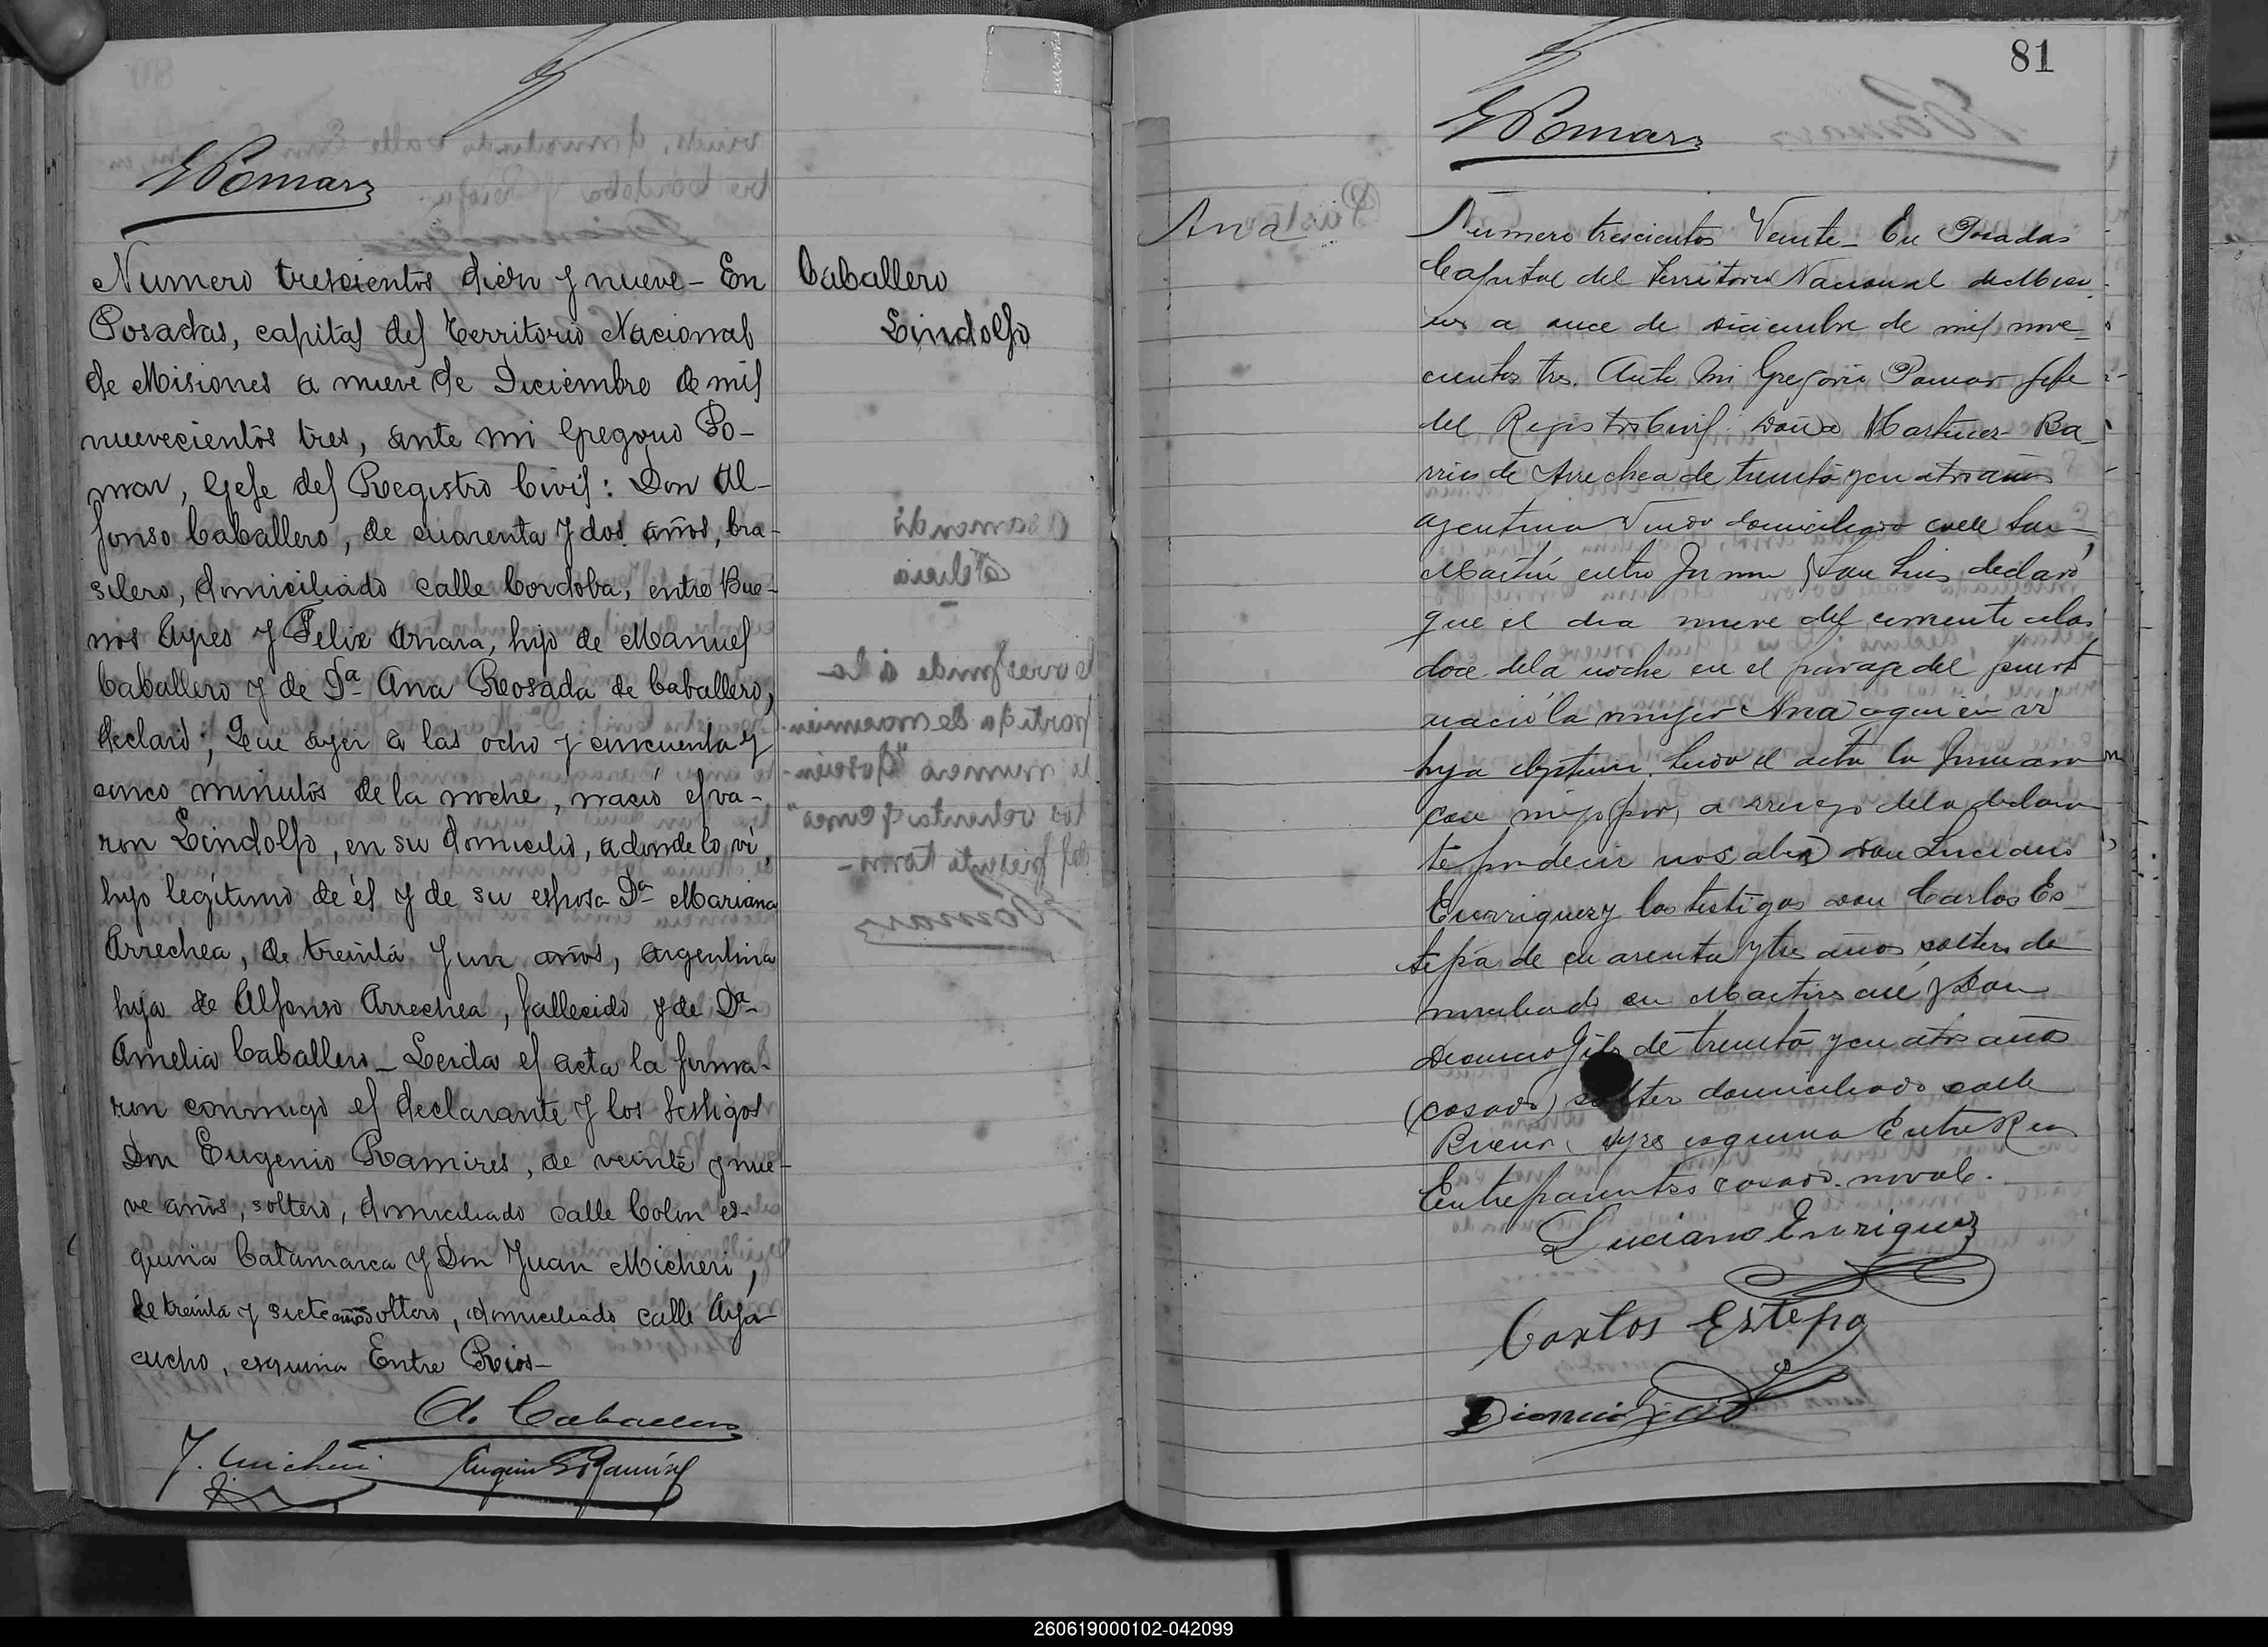 GPomar
Numero trescientos diez y nueve - En
Posadas, capital del Territorio Nacional
de Misiones a nueve de Diciembre de mil
nuevecientos tres, ante mi Gregorio Po-
mar, Gefe del Registro Civil: Don Al-
fonso Caballero, de cuarenta y dos años, bra-
silero, domiciliado calle Cordoba, entre Bue-
nos Ayres y Felix Azara, hijo de Manuel
Caballero y de Da Ana Rosada de Caballero,
declaró; Que ayer a las ocho y cincuenta y
cinco minutos de la noche, nació el va-
ron Lindolfo, en su domicilio, a donde lo vi,
hijo legítimo de él y de su esposa Da Mariana
Arrechea, de treinta y un años, argentina
hija de Alfonso Arrechea, fallecido y de Da
Amelia Caballero - Leida el acta la firma-
ron conmigo el declarante y los testigos
Don Eugenio Ramires, de veinte y nue-
ve años, soltero, domiciliado calle Colon es-
quina Catamarca y Don Juan Micheri,
de treinta y siete años soltero, domiciliado calle Aya-
cucho, esquina Entre Rios -
A. Caballero
J. Micheri Eugenio Ramírez
Caballero
Lindolfo
81
GPomar
Ana
Numero trescientos Veinte - En Posadas
Capital del Territorio Nacional de Misio
nes a once de diciembre de mil nove
cientos tres. Ante mi Gregorio Pomar Jefe
del Registro Civil: Doña Martinez Ba
rrios de Arrechea de treinta y cuatro años
argentina Viuda domiciliado calle San
Martin entre Jujuy y San Luis declaró
que el dia nueve del corriente a las
doce de la noche en el parage del puerto
nació la mujer Ana a quien vi
hija lejitima. Leida el acta la firmaron
con migo (por) a rruego dela declaran
te por decir no sabe) Don Luciano
Enrriquez y los testigos Don Carlos Es
tepa de cuarenta y tres años soltero do
miciliado en Martires y Don
Dionicio Gil de treinta y cuatro años
(casado) solter domiciliado calle
Buenos Ayres esquina Entre Rios
Entreparentes casado. no vale.
Luciano Enrriquez
Carlos Estepa
Dionicio Gil
260619000102-042099